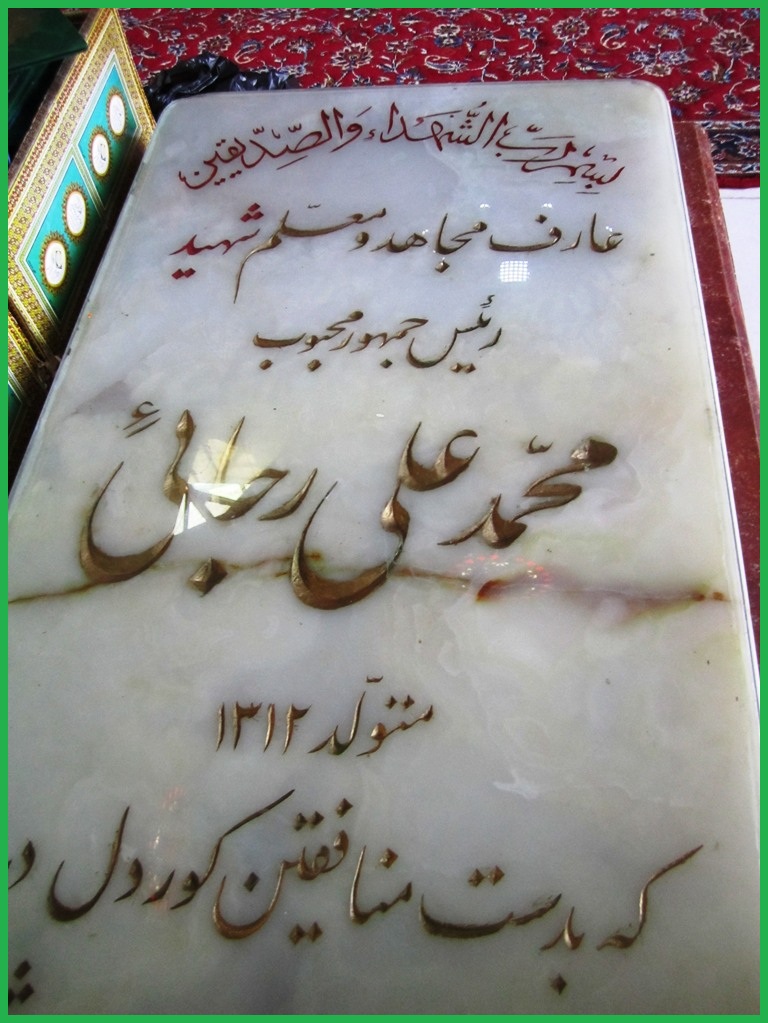 بسم رب الشُّهَداءِ وَالصِّدّیقین
عارف مجاهد و معلّم شهید
رئیس جمهور محبوب
محمّد علی رجائی
متولّد ۱۳۱۲
که بدست منافقین کوردل